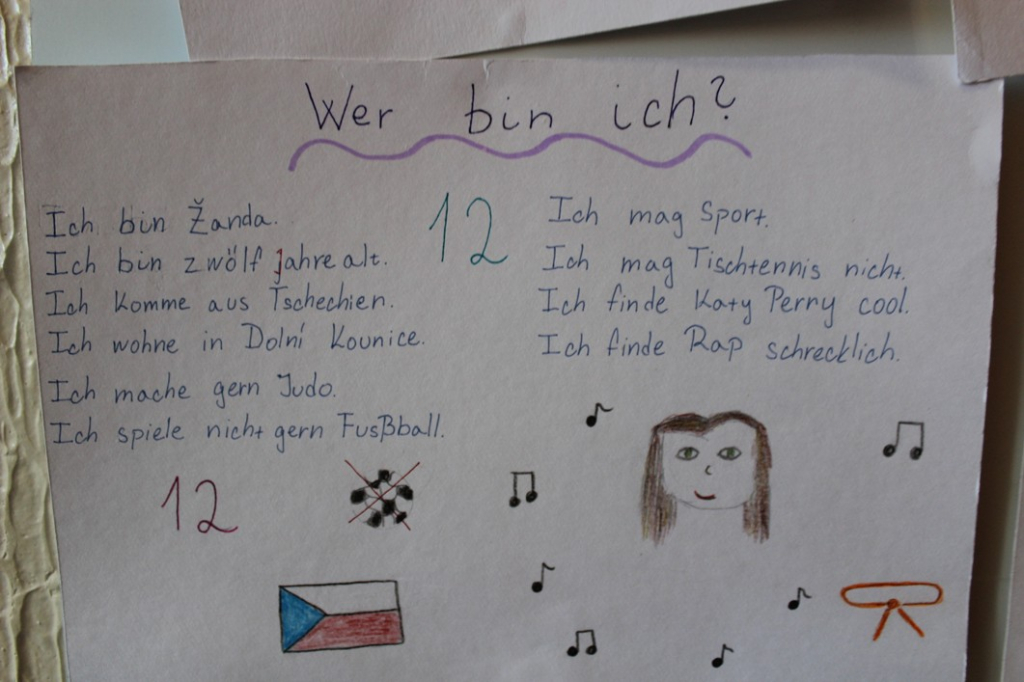 Wer bin ich?
Ich bin Žanda.
Ich bin zwölf jahre alt.
Ich komme aus Tschechien.
Ich wohne in Dolní Kounice.
Ich mache gern Judo.
Ich spiele nicht gern Fusßball.
12
12
Ich mag Sport.
Ich mag Tischtennis nicht.
Ich finde Katy Perry cool.
Ich finde Rap schrecklich.